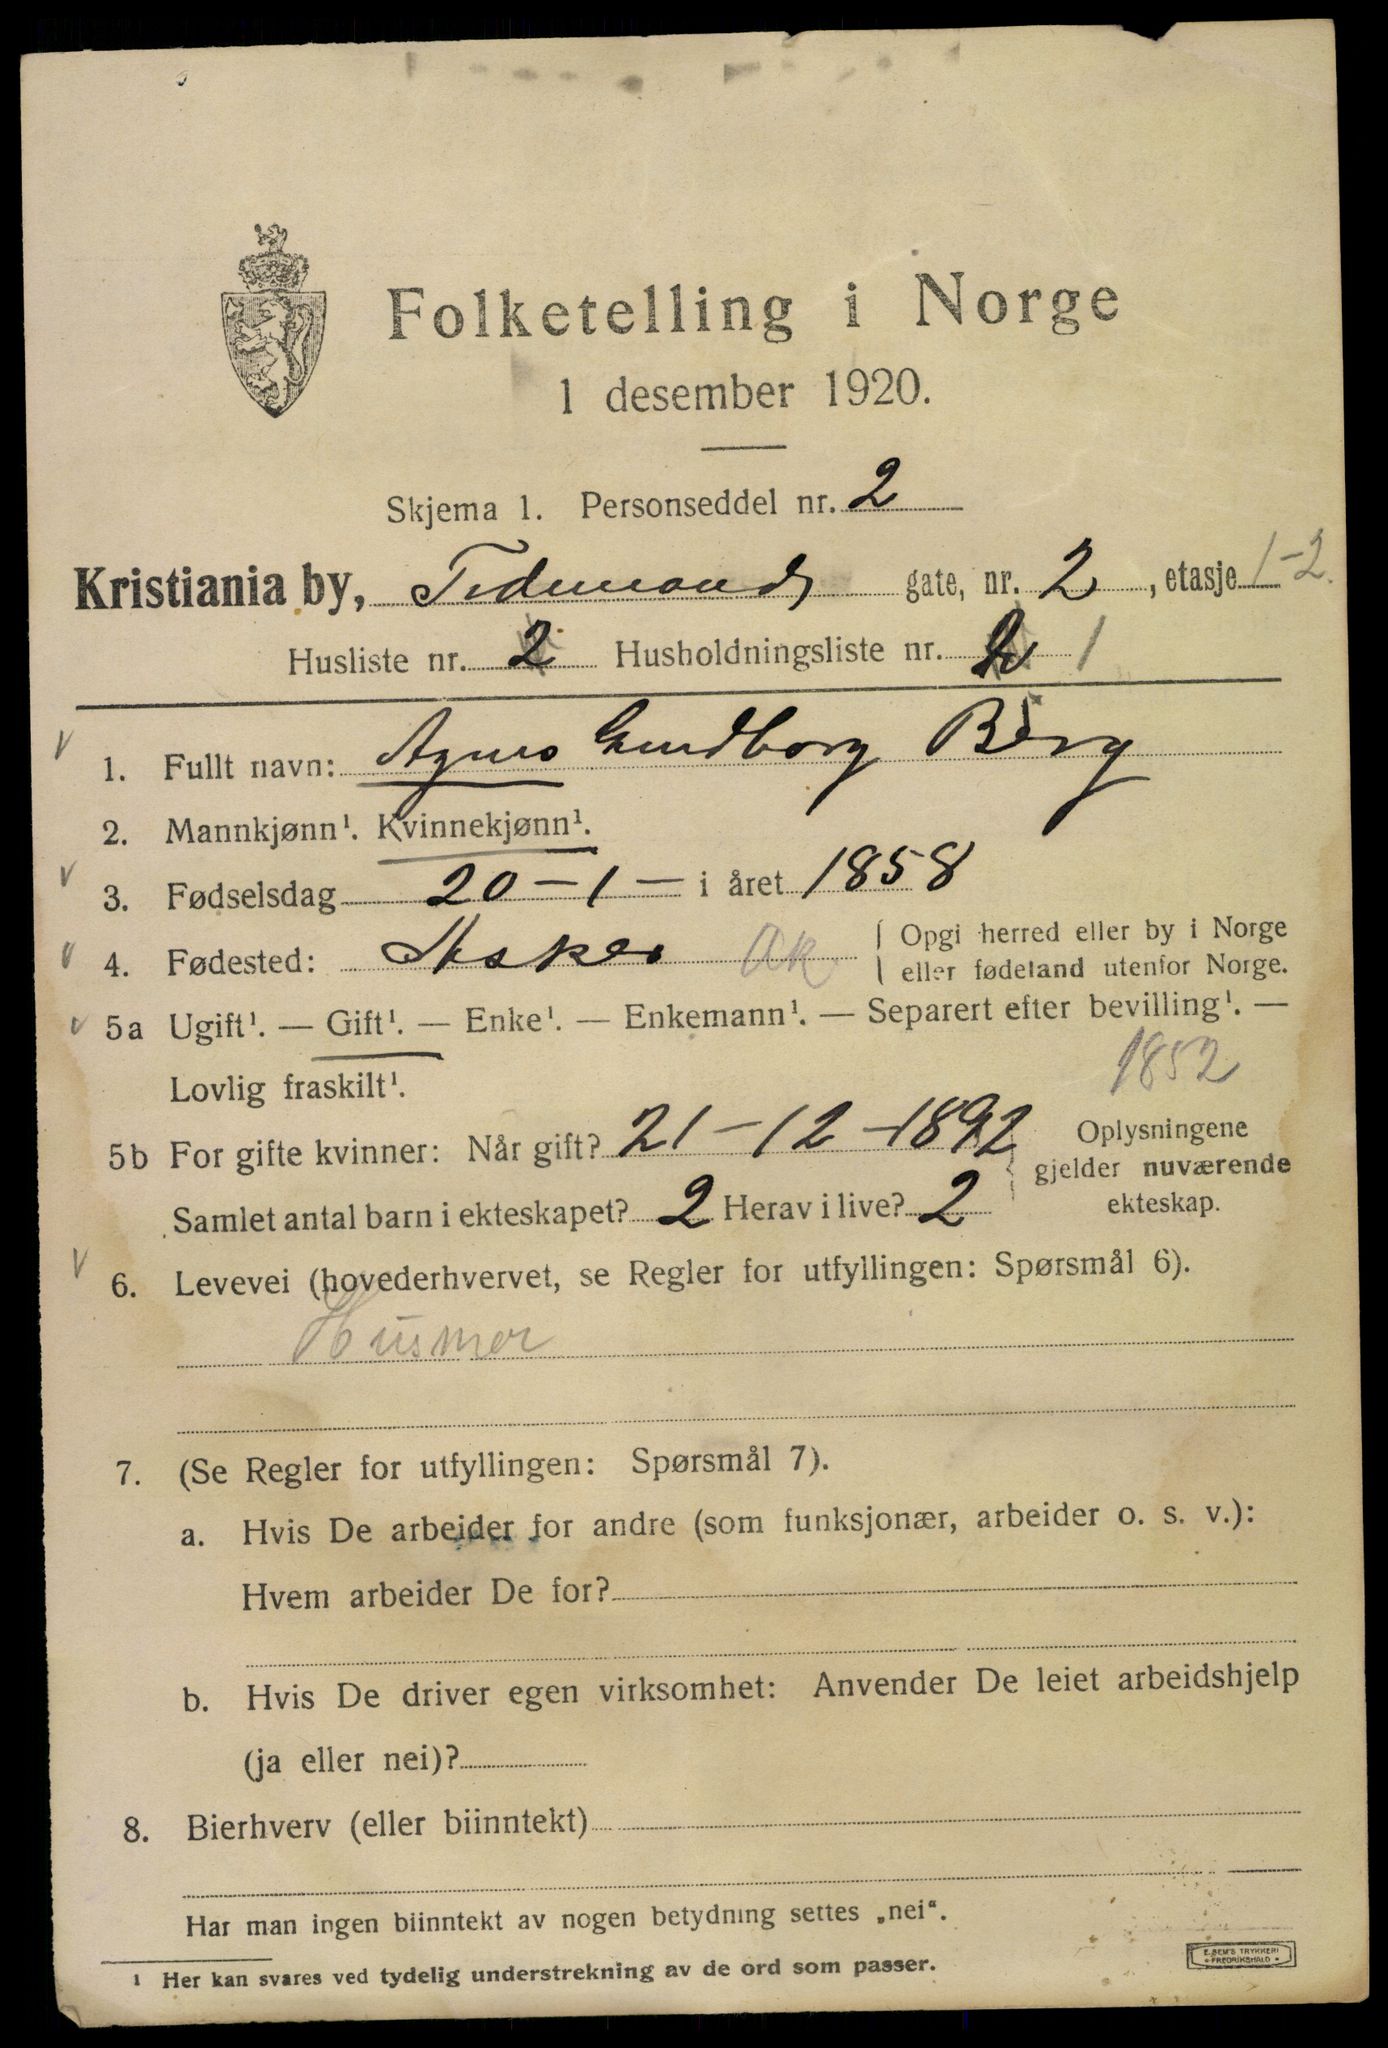 Folketelling i Norge
1 desember 1920.
Skjema 1. Personseddel nr. 2
Kristiania by, Tidemands gate, nr. 2, etasje 1-2.
Husliste nr. 2 Husholdningsliste nr. 2 1
1. Fullt navn: Agnes Gundborg Berg
2. Mannkjønn¹. Kvinnekjønn¹.
3. Fødselsdag 20-1- i året 1858
4. Fødested: Asker Ak { Opgi herred eller by i Norge
eller fødeland utenfor Norge.
5a Ugift¹. — Gift¹. — Enke¹. — Enkemann¹. — Separert efter bevilling¹. —
Lovlig fraskilt¹. 1852
5b For gifte kvinner: Når gift? 21-12-1892 Oplysningene
gjelder nuværende
Samlet antal barn i ekteskapet? 2 Herav i live? 2 ekteskap.
6. Levevei (hovederhvervet, se Regler for utfyllingen: Spørsmål 6).
Husmor
7. (Se Regler for utfyllingen: Spørsmål 7).
a. Hvis De arbeider for andre (som funksjonær, arbeider o. s. v.):
Hvem arbeider De for?
b. Hvis De driver egen virksomhet: Anvender De leiet arbeidshjelp
(ja eller nei)?
8. Bierhverv (eller biinntekt)
Har man ingen biinntekt av nogen betydning settes „nei“.
¹ Her kan svares ved tydelig understrekning av de ord som passer.
E. SEM'S TRYKKERI
FREDRIKSHALD